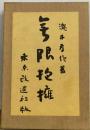 瀧井孝作著
無限抱擁
東京改造社版